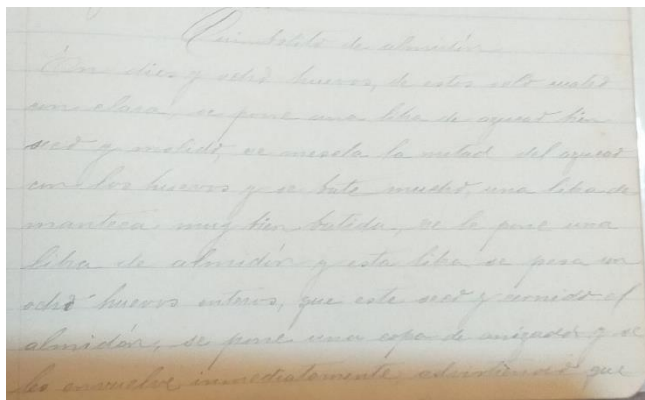 Quimbolito de almidón
Con dies y ocho huevos, de estos solo cuatro
con clara, se pone una libra de azucar bien
seco y molido, se mescla la mitad del azucar
con los huevos y se bate mucho, una libra de
manteca muy bien batida, se le pone una
libra de almidón y esta libra se pesa con
ocho huevos enteros, que este seco y cernido el
almidón, se pone una copa de anizado y se
los envuelve inmediatamente, advirtiendo que